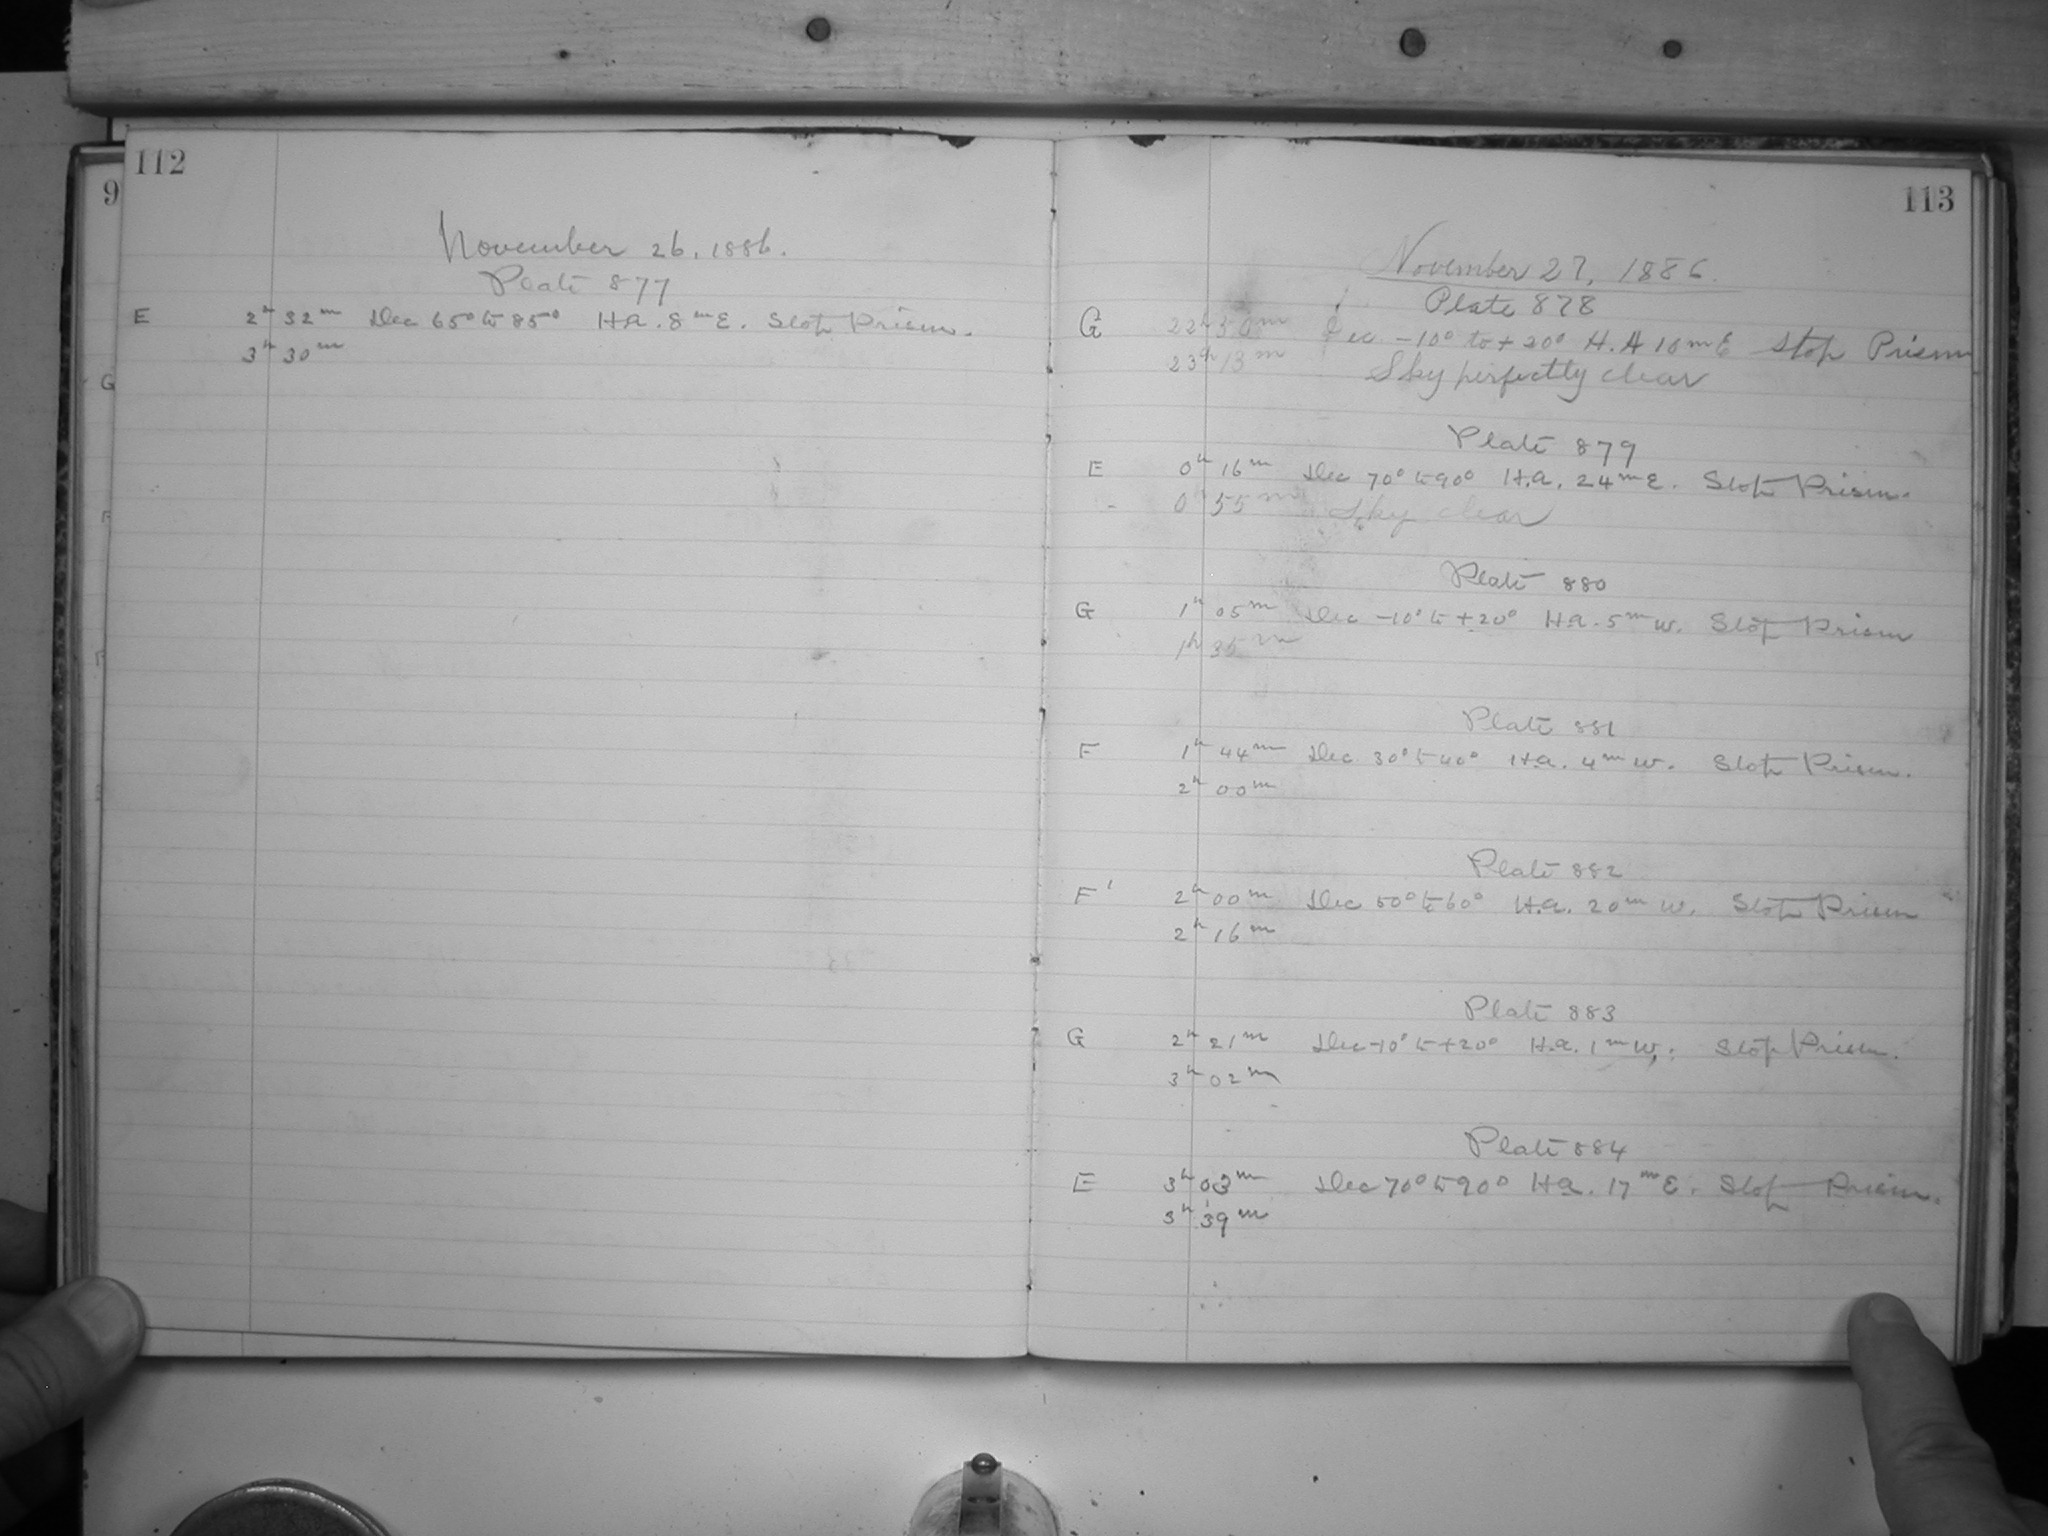 112
November 26, 1886.
Plate 877
E 2h 32m Dec 65° to 85° H.a. 8m E. Stop Prism.
3h 30m
9
G
F
113
November 27, 1886.
Plate 878
G 22h 30m Dec. -10° to +20° H.A 10m E Stop Prism
23h 13m Sky perfectly clear
Plate 879
E 0h 16m Dec 70° to 90° H.a. 24m E. Stop Prism.
0h 55m Sky clear
Plate 880
G 1h 05m Dec -10° to +20° H.a. 5m W. Stop Prism
1h 35m
Plate 881
F 1h 44m Dec. 30° to 40° H.a. 4m W. Stop Prism.
2h 00m
Plate 882
F' 2h 00m Dec 50° to 60° H.a. 20m W. Stop Prism
2h 16m
Plate 883
G 2h 21m Dec -10° to +20° H.a. 1m W. Stop Prism.
3h 02m
Plate 884
E 3h 03m Dec 70° to 90° H.a. 17m E. Stop Prism.
3h 39m